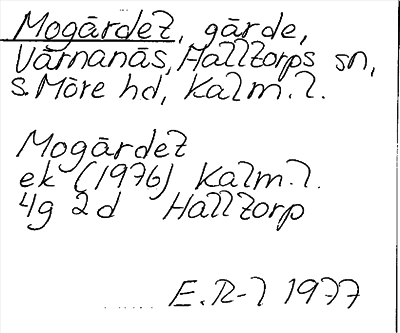 Mogärdet, gärde,
Värnanäs, Halltorps sn,
S. Möre hd, Kalm. l.
Mogärdet
ek (1976) Kalm. l.
4g 2d Halltorp
E. R-l 1977